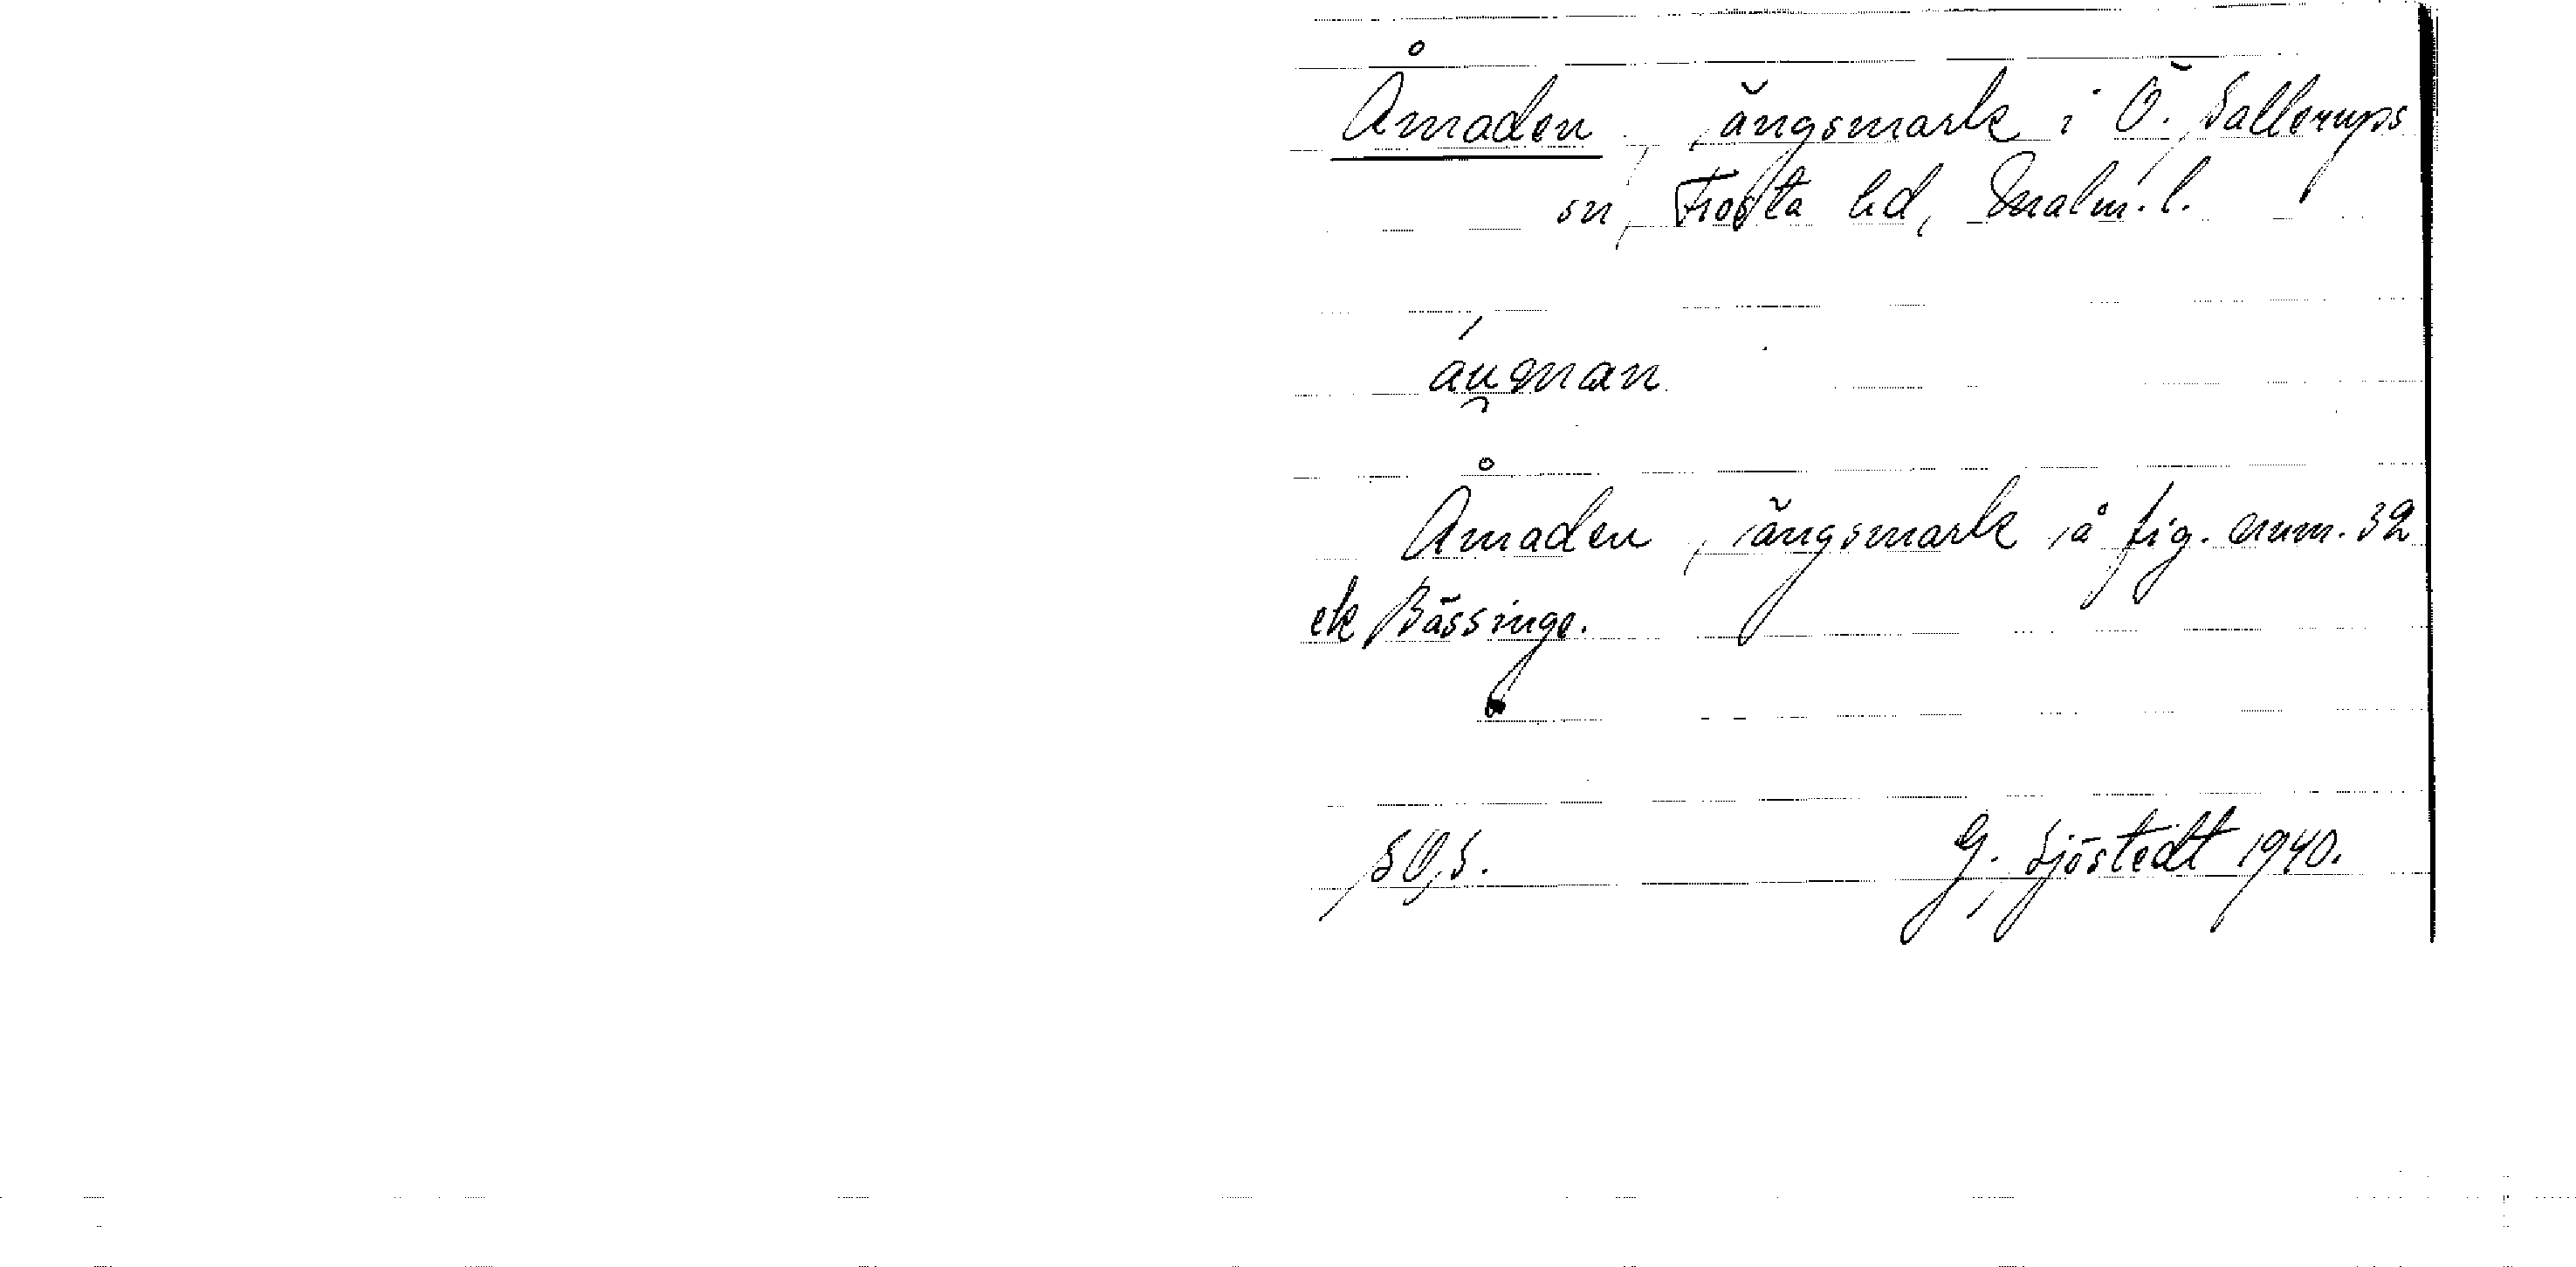 Åmaden, ängsmark i Ö. Sallerups
sn, Frosta hd, Malm. l.
áu̯man
Åmaden, ängsmark å fig. num. 32
ek Bässinge.
SOS. G. Sjöstedt 1940.